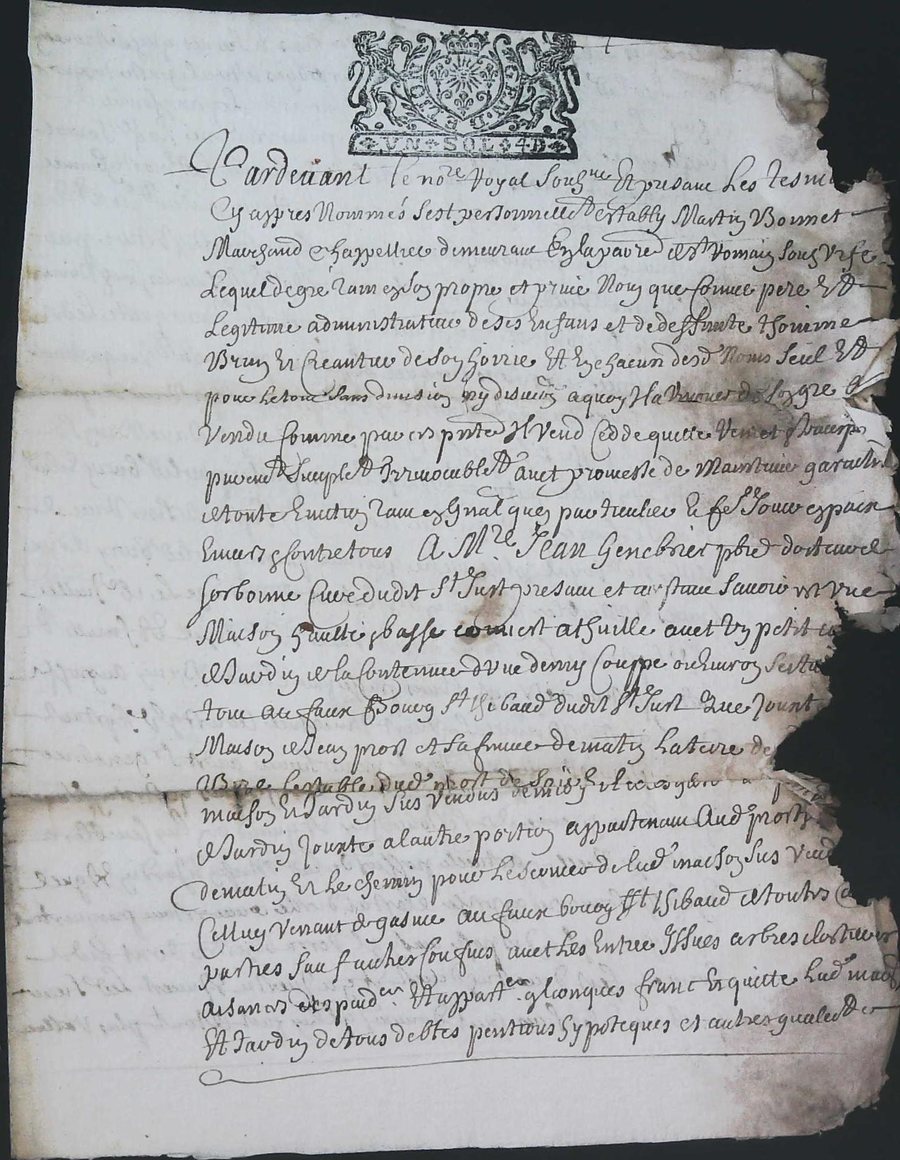 GNAL DE RION
VN SOL 4D
Pardevant le no.re Royal Soub.ne Et presanc Les tesm
Cy appres Nommés s'est personnelle.t establÿ Martin Bonnet
Marchand Chappellier demeurant En la parr. de St Romain soub Urfe
Lequel de gré tant en son propre et privé Nom que comme pere Et
Legitime administrateur de ses Enfans et de deffunte
Brun Et Creantier de son hoirie Et En chacun desd. Noms Seul Et
pour le tout sans division ny discution a quoy Il a renoncé de son gré
Vendu Comme par ces pnte Il Vend Cedde quitte Remet
purem.t Simple.t Irrevocable.t avec promesse de Maintenir garantir
de toute Eviction tant en gnal que particulier
Envers & Contre tous A M.re Jean Genebrier pbre docteur de
Sorbonne Curé dudit St Just presant et acceptant Savoir est Une
Maison haulte & basse couverte a thuille avec Un petit
de Jardin de la Contenue d'une demy Couppe ou Environ
tout au faux bourg St thibaud dudit St Just Que Jount
Maison de Jean prost et sa femme de matin La terre de
Bize Lestable dud. prost de soir Et
maison Et Jardin sus vendus
de Jardin Jounte a l'autre portion appartenant Aud. prost
de matin Et Le chemin pour Le service de lad. maison sus Vend
Celluy Venant de au faux bourg St thibaud de toutes
parties sauf aultres confins avec Les Entrée Issues arbres
aisances despand.ces Et appart.ces qlconques franc Et quitte Lad. maison
Et Jardin de tous debtes pentions hypoteques et autres